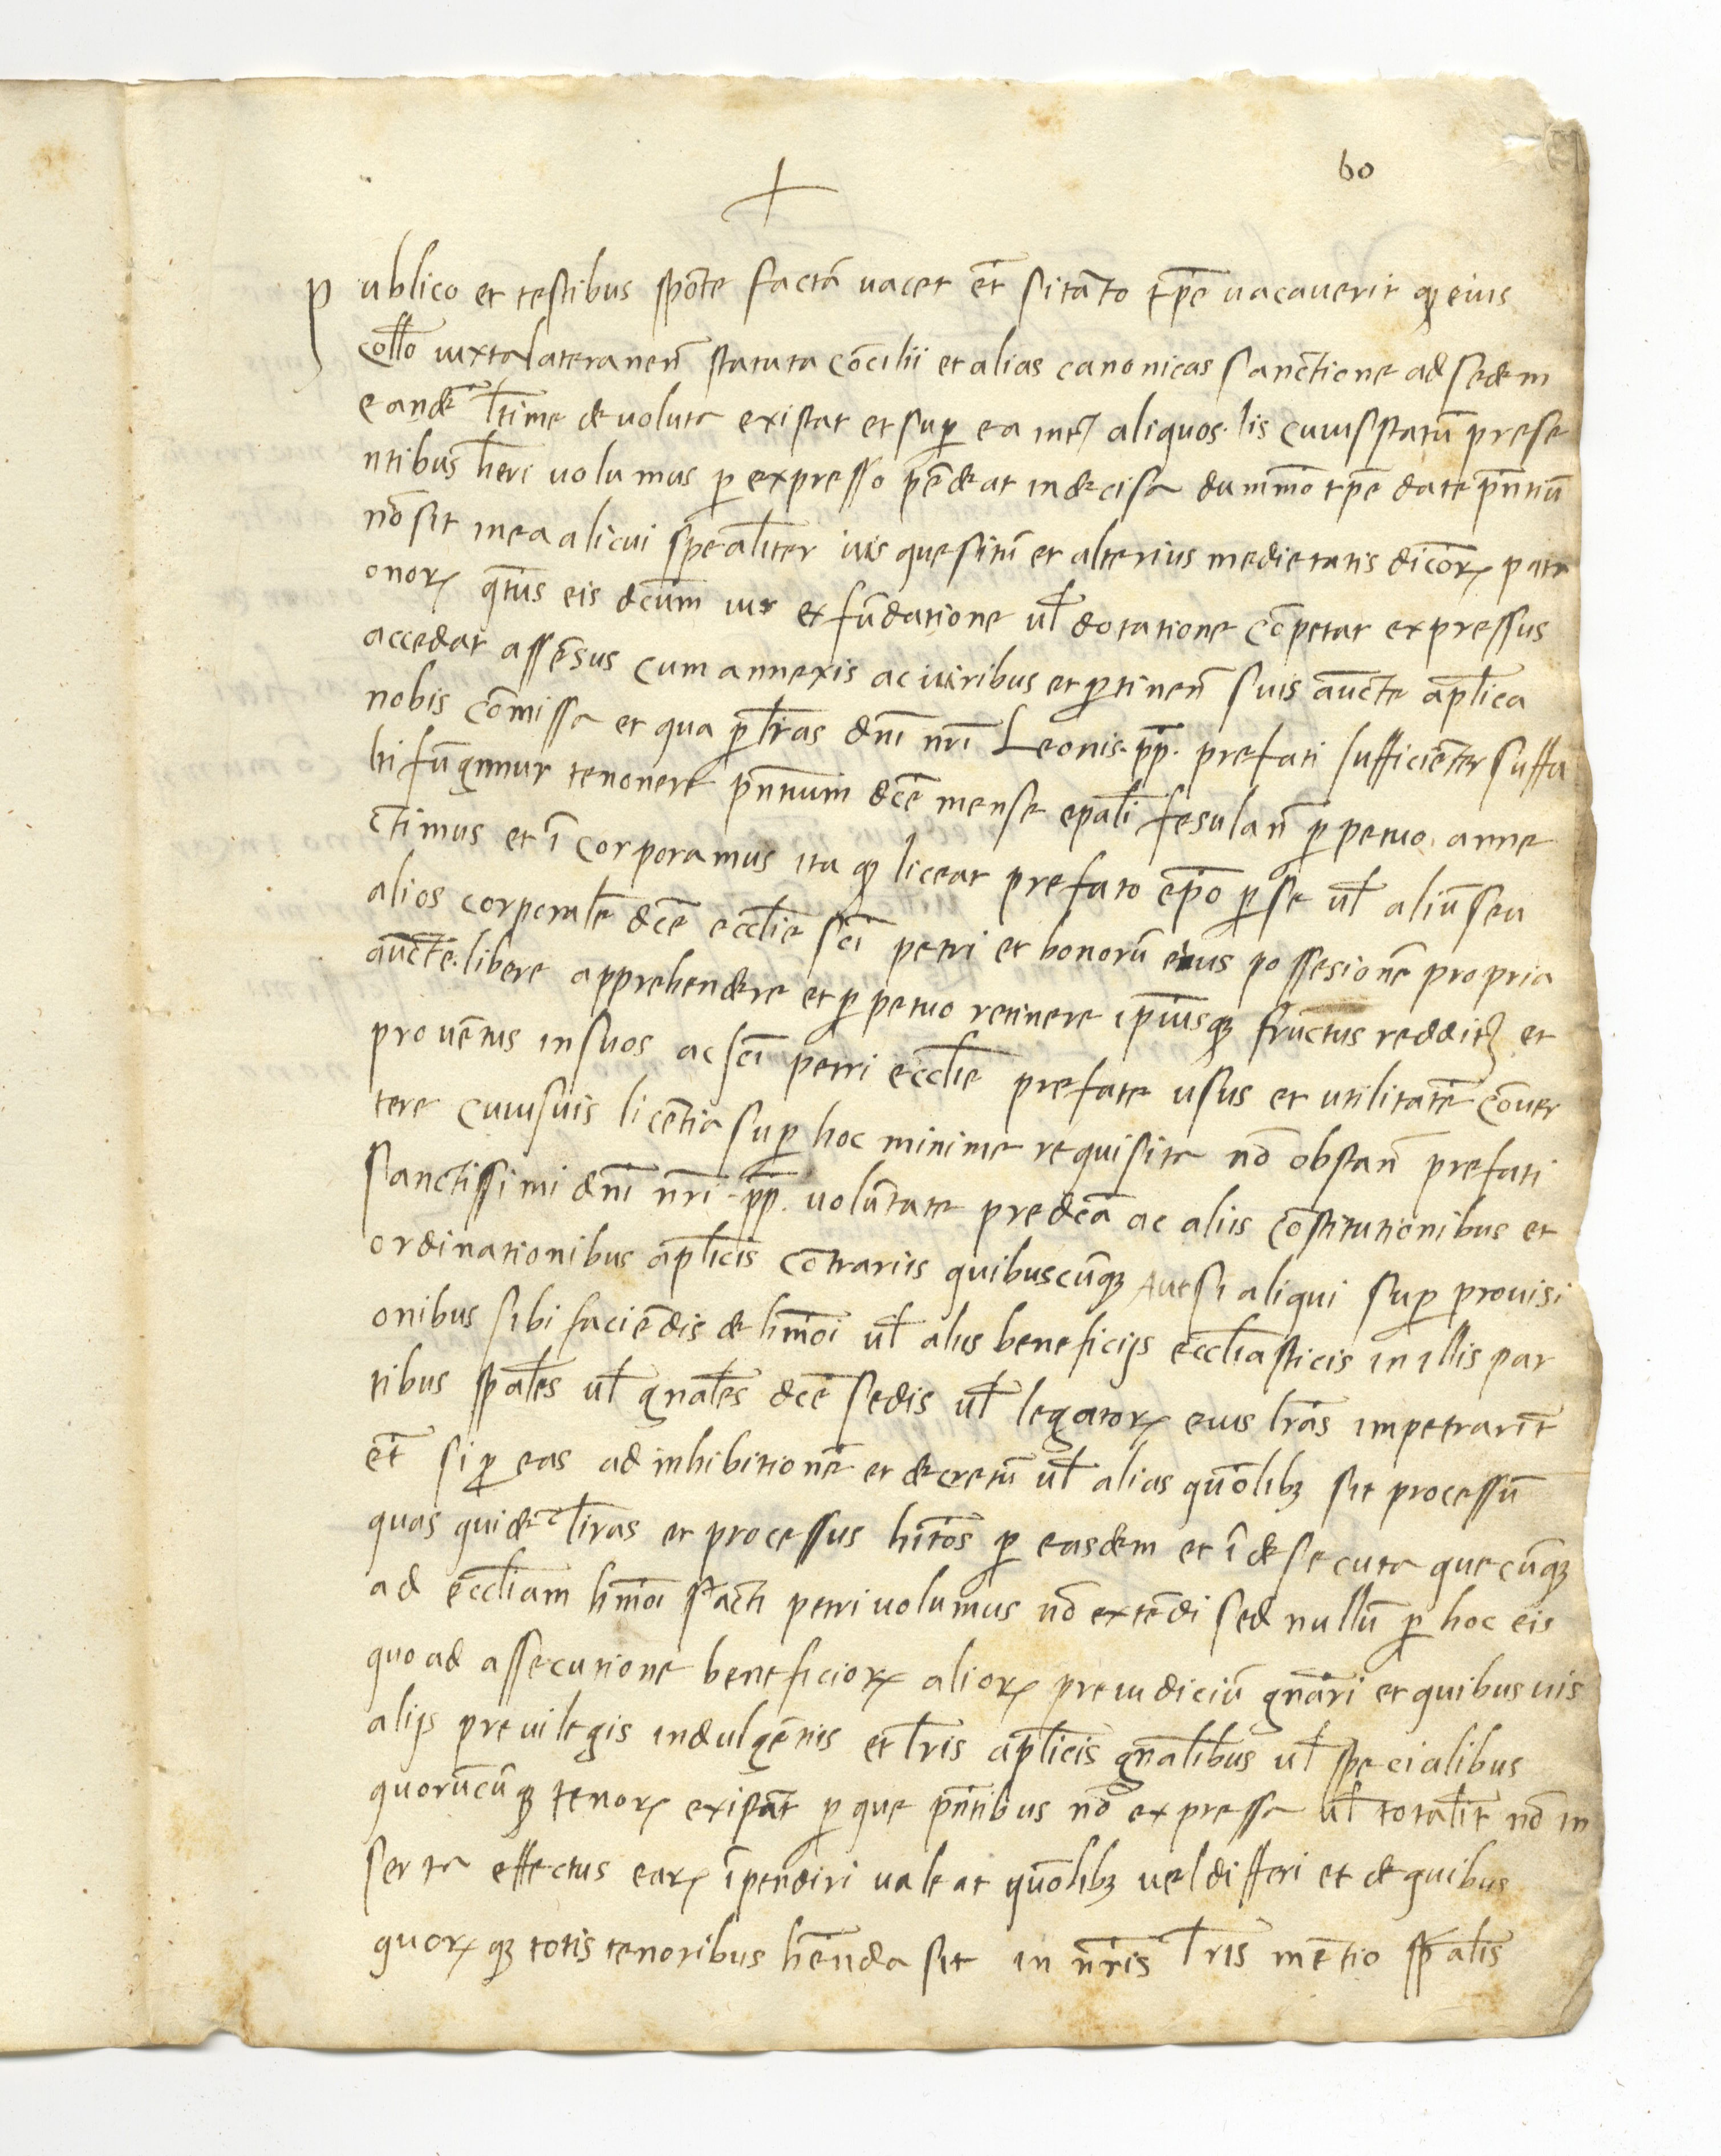 60
Publico et testibus spōte factā vacet et̄ si tāto tp̄e vacaverit qɜ eius
coll̄o iuxta lateranen̄ statuta cōcilii et alias canonicas sanctione ad sedem
eandē l̄time devoluta existat et sup̱ ea int̄ aliquos lis cuius statū prese
ntibus h̄eri volumus p̱ expresso pēdeat indecisa dummō tp̄e date pn̄tiū
nō sit in ea alicui spēaliter ius quesitū et alterius medietatis dīcoꝝ patr
onoꝝ q̄tus eis dc̄um ius ex fūdatione vl̄ dotatione cōpetat expressus
accedat assēsus cum annexis ac iuribus et p̱tinen̄ suis auc̄te ap̄lica
nobis cōmissa et qua p̱ l̄ras dn̄i nr̄i Leonis pp̄. prefati sufficiēter suffu
lti fūgimur tenore pn̄tium dc̄e mense ep̄ali fesulan̄ p̱petuo anne
ctimus et īcorporamus ita qɜ liceat prefato ep̄o p̱ se vl̄ aliū seu
alios corporalē dc̄e eccl̄ie sc̄i petri et bonorū eius possesionē propria
auc̄te. libere apprehendere et p̱petuo retinere ip̄iusqɜ fructus reddit9 et
provētus in suos ac sc̄i petri eccl̄ie prefate usus et utilitatē cōver
tere cuiusuis licētia sup̱ hoc minime requisita nō obstan̄ prefati
sanctissimi dn̄i nr̄i pp̄. volūtate predc̄a ac aliis cōstitutionibus et
ordinationibus ap̄licis cōtrariis quibuscūqɜ Aut si aliqui sup̱ provisi
onibus sibi faciēdis de hm̄oi vl̄ aliis beneficijs eccl̄iasticis in illis par
tibus sp̄ales vl̄ gn̄ales dc̄e sedis vl̄ legatoꝝ eius l̄ras impetrarīt
et̄ si p̱ eas ad inhibitionē et decretū vl̄ alias quōlibɜ sit processū
quas quidē l̄ras et processus hitōs p̱ easdem et īde secuta quecūqɜ
ad eccl̄iam hm̄oi sācti petri volumus nō extēdi sed nullū p̱ hoc eis
quo ad assecutione beneficioꝝ alioꝝ preiudiciū gn̄ari et quibusuis
alijs previlegis indulgētiis et l̄ris ap̄licis gn̄alibus vl̄ specialibus
quorūcūqɜ tenoꝝ existāt p̱ que pn̄tibus nō expressa vl̄ totalit̄ nō in
serta effectus eaꝝ īpendiri valeat quōlibɜ vel differi et de quibus
quoꝝqɜ totis tenoribus hēnda sit in nr̄is l̄ris mētio sp̄alis